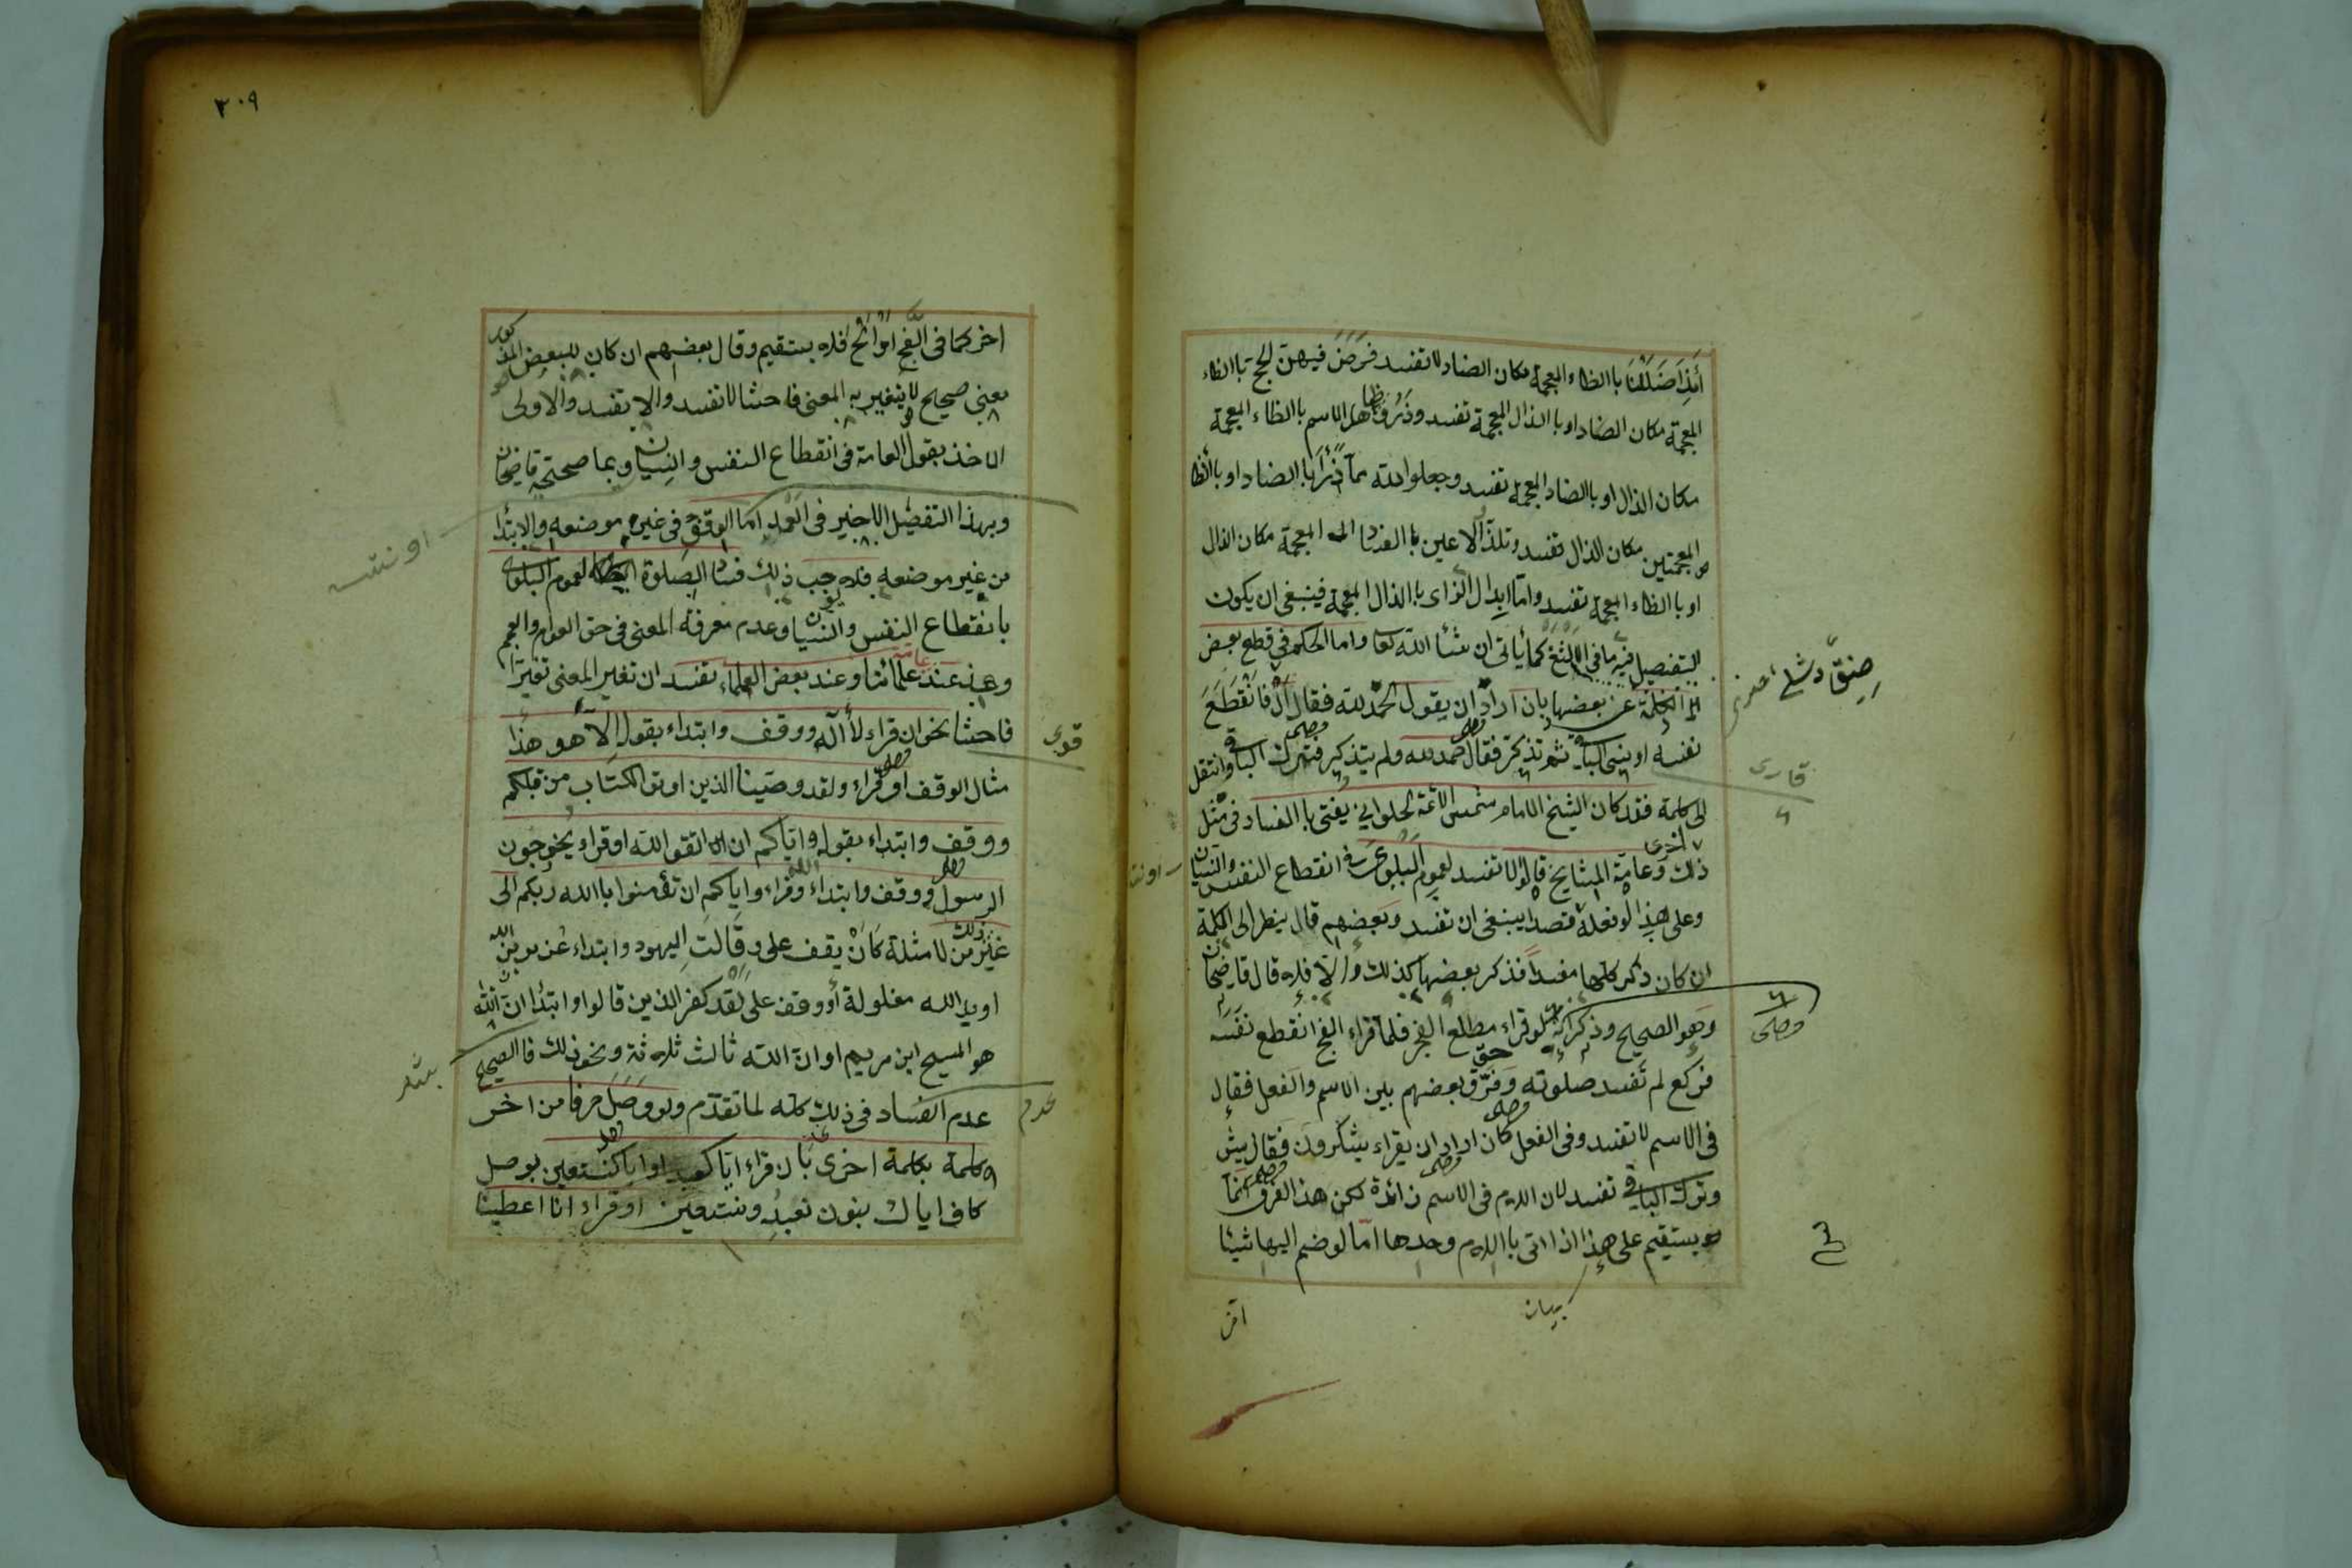 أئذا ضللنا باالظاء المعجمة مكان الضاد لا تفسد فرض فيهن الحج باالظاء
المعجمة مكان الضاد او باالذال المعجمة تفسد وذروا ظاهر الاسم باالظاء المعجمة
مكان الذال او باالضاد المعجمة تفسد وجعلوا لله مما ذرأ باالضاد او باالظا
المعجمتين مكان الذال تفسد وتلذ الاعين باالضاد المعجمة مكان الذال
او باالظاء المعجمة تفسد واما ابدال الزاى باالذال المعجمة فينبغى ان يكون
التفصيل فيه ما فى الالثغ كما يأتى ان شاء الله تعا واما الحكم فى قطع بعض
الكلمة عن بعضها بان اراد ان يقول الحمد لله فقال ال فانقطع
نفسه او نسى الباقى ثم تذكر فقال حمد لله ولم يتذكر فترك الباقى وانتقل
الى كلمة اخرى فقد كان الشيخ الامام شمس الائمة الحلوانى يفتى باالفساد فى مثل
ذلك وعامة المشايخ قالوا لا تفسد لعموم البلوى فى انقطاع النفس والنسيان
وعلى هذا لو فعله قصدا ينبغى ان تفسد وبعضهم قال ينظر الى الكلمة
ان كان ذكر كلها مفسدا فذكر بعضها كذلك والا فلا قال قاضيخان
وهو الصحيح وذكر انه لو قراء مطلع الفجر فلما قراء الفج انقطع نفسه
فركع لم تفسد صلوته وفرق بعضهم بين الاسم والفعل فقال
فى الاسم لا تفسد وفى الفعل كان اراد ان يقراء يشكرون فقال يش
وترك الباقى تفسد لان اللام فى الاسم زائدة لكن هذا الفرق انما
يستقيم على هذا اذا اتى باالام وحدها اما لو ضم اليها شيئا
قارى
وصلى
بيان
٣٠٩
اخر كما فى الفج او الح فلا يستقيم وقال بعضهم ان كان للبعض المذكور
معنى صحيح لا يتغير به المعنى فاحشا لا تفسد والا تفسد والاولى
الاخذ بقول العامة فى انقطاع النفس والنسيان وبما صححه قاضيخان
وبهذا التفصيل الاخير فى العمد اما الوقف فى غير موضعه والابتدا
من غير موضعه فلا يوجب ذلك فساد الصلوة لعموم البلوى
بانقطاع النفس والنسيان وعدم معرفة المعنى فى حق العوام والعجم
وهذا عند عامة علمائنا وعند بعض العلماء تفسد ان تغير المعنى تغيرا
فاحشا نحو ان قراء لا اله ووقف وابتداء بقول الا هو هذا
مثال الوقف او قراء ولقد وصينا الذين اوتوا الكتاب من قبلكم
ووقف وابتداء بقوله واياكم ان اتقوا الله او قراء يخرجون
الرسول ووقف وابتداء وقراء واياكم ان تؤمنوا باالله ربكم الى
غير ذلك من لامثلة كان يقف على وقالت اليهود وابتداء عزير بن الله
او يد الله مغلولة أو وقف على لقد كفر الذين قالوا وابتدا ان الله
هو المسيح ابن مريم او ان الله ثالث ثلاثة ونحو ذلك فاالصحيح
عدم الفساد فى ذلك كله لما تقدم ولو وصل حرفا من اخر
كلمة بكلمة اخرى بان قراء اياكنعبد او اياكنستعين بوصل
كاف اياك بنون نعبد ونستعين او قراء انا اعطينا
قوى
عدم